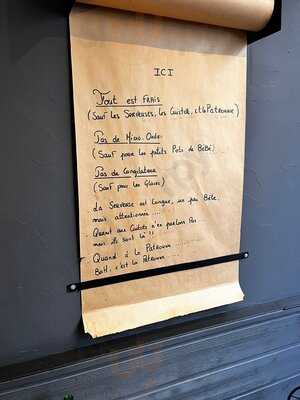 ICI
Tout est FRAIS
(Sauf les Serveuses, les Cuistots, et la Patronne)
Pas de Micro. Onde.
(Sauf pour les petits Pots de Bébé)
Pas de Congélateur
(Sauf pour les Glaces)
La Serveuse est longue, un peu Bête
mais attentionnée ...
Quant aux Cuistots n'en parlons Pas
mais ils sont là !!
Quand à la Patronne ..........
Bah! c'est la Patronne .......